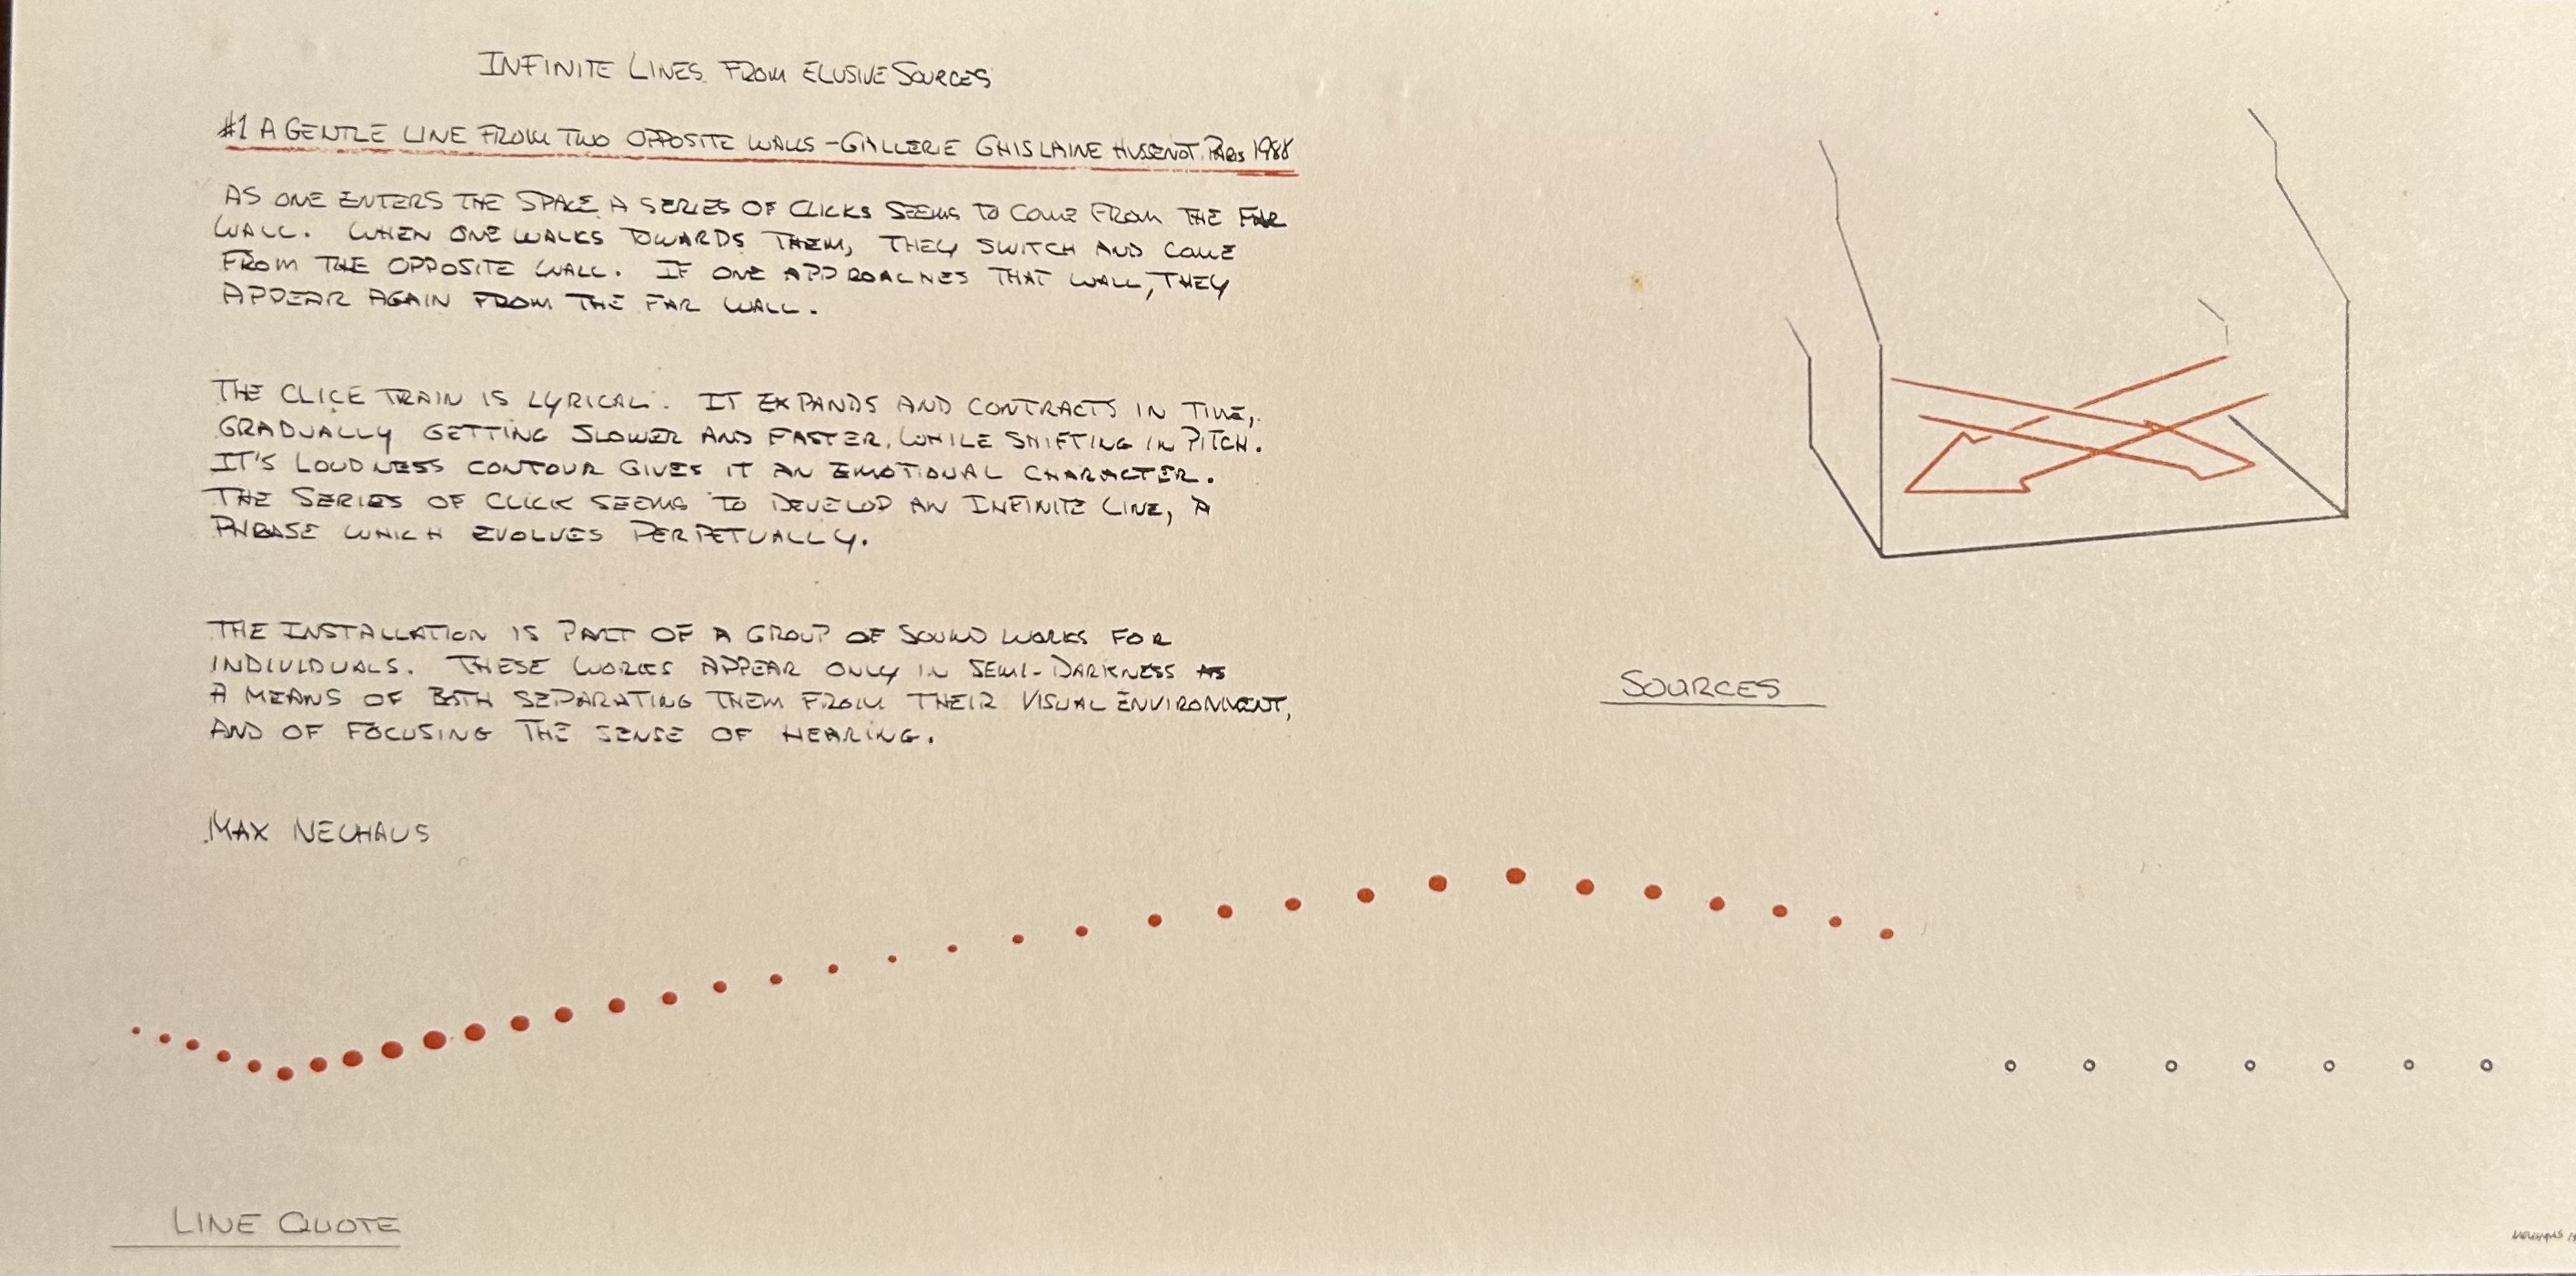 INFINITE LINES FROM ELUSIVE SOURCES
#1 A GENTLE LINE FROM TWO OPPOSITE WALLS - GALLERIE GHISLAINE HUSSENOT. PARIS 1988
AS ONE ENTERS THE SPACE A SERIES OF CLICKS SEEMS TO COME FROM THE FAR
WALL. WHEN ONE WALKS TOWARDS THEM, THEY SWITCH AND COME
FROM THE OPPOSITE WALL. IF ONE APPROACHES THAT WALL, THEY
APPEAR AGAIN FROM THE FAR WALL.
THE CLICK TRAIN IS LYRICAL. IT EXPANDS AND CONTRACTS IN TIME,
GRADUALLY GETTING SLOWER AND FASTER, WHILE SHIFTING IN PITCH.
IT'S LOUDNESS CONTOUR GIVES IT AN EMOTIONAL CHARACTER.
THE SERIES OF CLICK SEEMS TO DEVELOP AN INFINITE LINE, A
PHRASE WHICH EVOLVES PERPETUALLY.
THE INSTALLATION IS PART OF A GROUP OF SOUND WORKS FOR
INDIVIDUALS. THESE WORKS APPEAR ONLY IN SEMI-DARKNESS AS
A MEANS OF BOTH SEPARATING THEM FROM THEIR VISUAL ENVIRONMENT,
AND OF FOCUSING THE SENSE OF HEARING.
MAX NEUHAUS
SOURCES
LINE QUOTE
NEUHAUS